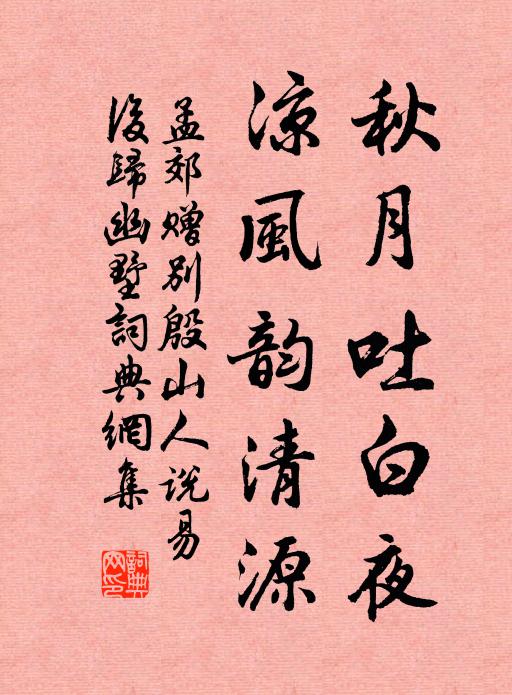 秋月吐白夜
凉風韵清源
孟郊赠别殷山人说易
後歸幽墅詞典網集
詞典网印